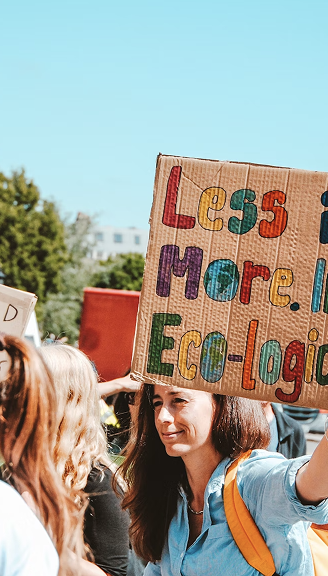 Less i
More. I
Eco-logic
D